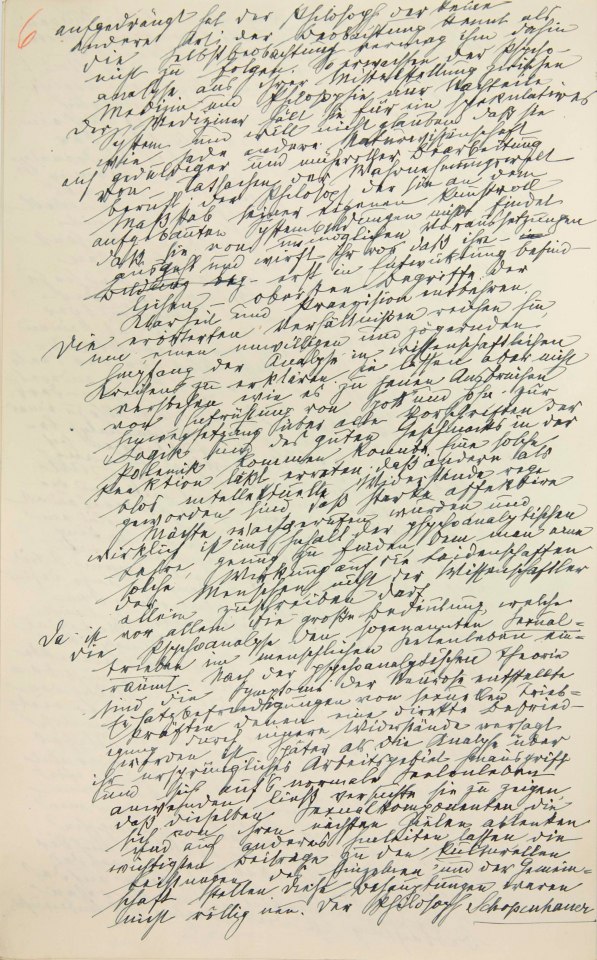 6
aufgedrängt hat der Philosoph der keine
andere Art der Beobachtung kennt als
die Selbstbeobachtung vermag ihm dahin
nicht zu folgen. So erwachsen der Psycho-
analyse aus ihrer Mittelstellung zwischen
Medizin und Philosophie nur Nachteile.
Der Mediziner hält sie für ein spekulatives
System und will nicht glauben daß sie
wie jede andere Naturwissenschaft
auf geduldiger und mühevoller Bearbeitung
von Tatsachen der Wahrnehmungswelt
beruht, der Philosoph der sie an dem
Maßstab seiner eigenen kunstvoll
aufgebauten Systembildungen mißt findet
daß sie von unmöglichen Voraussetzungen
ausgeht und wirft ihr vor daß ihre
erst in Entwicklung befind-
lichen – obersten Begriffe der
Klarheit und Praezision entbehren.
Die erörterten Verhältnissen reichen hin
um einen unwilligen und zögernden
Empfang der Analyse in wissenschaftlichen
Kreisen zu erklären. Sie lassen aber nicht
verstehen wie es zu jenen Ausbrüchen
von Entrüstung von Spott und Hohn zur
Hinwegsetzung über alle Vorschriften der
Logik und des guten Geschmacks in der
Polemik kommen konnte. Eine solche
Reaktion läßt erraten, daß andere als
blos intellektuelle Widerstände rege
geworden sind daß starke affektive
Mächte wachgerufen wurden und
wirklich ist im Inhalt der psychoanalytischen
Lehre genug zu finden dem man eine
solche Wirkung auf die Leidenschaften
der Menschen nicht der Wissenschaftler
allein zuschreiben darf.
Da ist vor allem die große Bedeutung welche
die Psychoanalyse den sogenannten Sexual-
trieben im menschlichen Seelenleben ein-
räumt. Nach der psychoanalytischen Theorie
sind die Symptome der Neurose entstellte
Ersatzbefriedigungen von sexuellen Trieb-
kräften denen eine direkte Befried-
igung durch innere Widerstände versagt
worden ist. Später als die Analyse über
ihr ursprüngliches Arbeitsgebiet hinausgriff
und sich auf's normale Seelenleben
anwenden ließ versuchte sie zu zeigen
daß dieselben Sexualkomponenten die
sich von ihren nächsten Zielen ablenken
und auf anderes hinleiten lassen die
wichtigsten Beiträge zu den kulturellen
Leistungen des Einzelnen und der Gemein-
schaft stellen. Diese Behauptungen waren
nicht völlig neu. Der Philosoph Schopenhauer